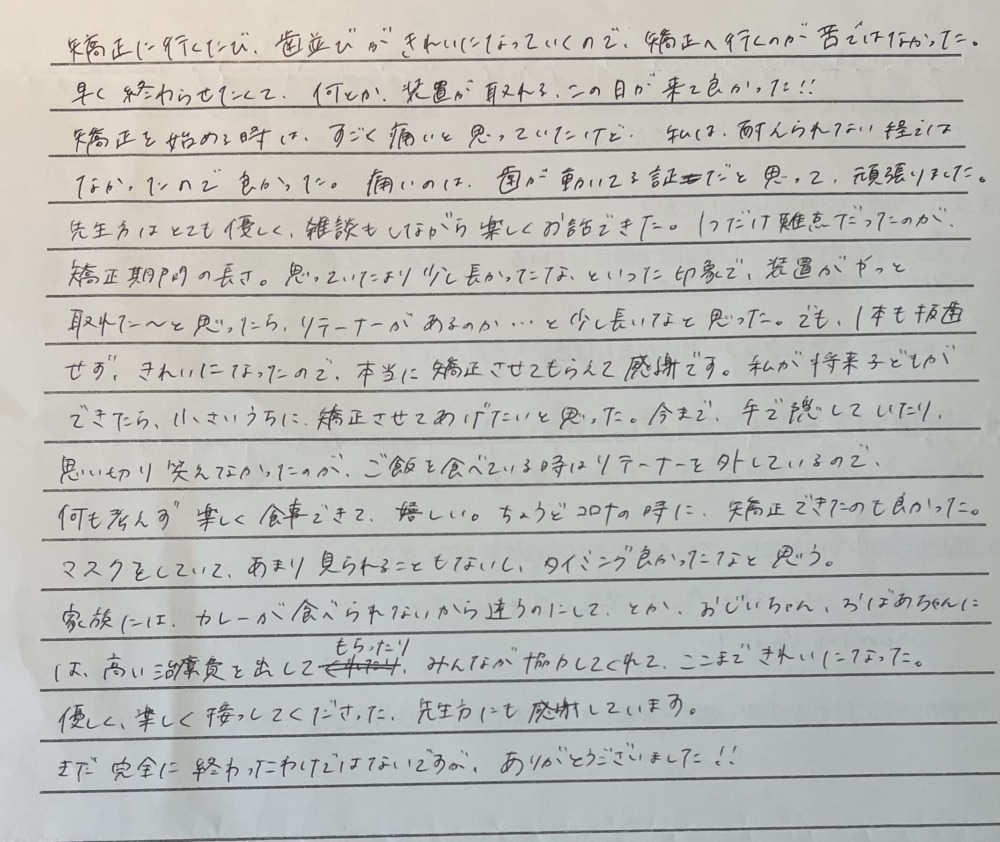 矯正に行くたび、歯並びがきれいになっていくので、矯正へ行くのが苦ではなかった。
早く終わらせたくて、何とか、装置が取れる、この日が来て良かった!!
矯正を始める時は、すごく痛いと思っていたけど、私は、耐えられない程では
なかったので良かった。痛いのは、歯が動いてる証だと思って、頑張りました。
先生方はとても優しく、雑談もしながら楽しくお話できた。1つだけ難点だったのが、
矯正期間の長さ。思っていたより少し長かったなといった印象で、装置がやっと
取れた〜と思ったら、リテーナーがあるのか…と少し長いなと思った。でも、1本も抜歯
せず、きれいになったので、本当に矯正させてもらえて感謝です。私が将来子どもが
できたら、小さいうちに、矯正させてあげたいと思った。今まで、手で隠していたり、
思い切り笑えてなかったのが、ご飯を食べている時はリテーナーを外しているので、
何も考えず楽しく食事できて、嬉しい。ちょうどコロナの時に、矯正できたのも良かった。
マスクをしていて、あまり見られることもないし、タイミング良かったなと思う。
家族には、カレーが食べられないから違うのにして、とか、おじいちゃん、おばあちゃんに
は、高い治療費を出してもらったり、みんなが協力してくれて、ここまできれいになった。
優しく、楽しく接してくださった、先生方にも感謝しています。
まだ完全に終わったわけではないですが、ありがとうございました!!